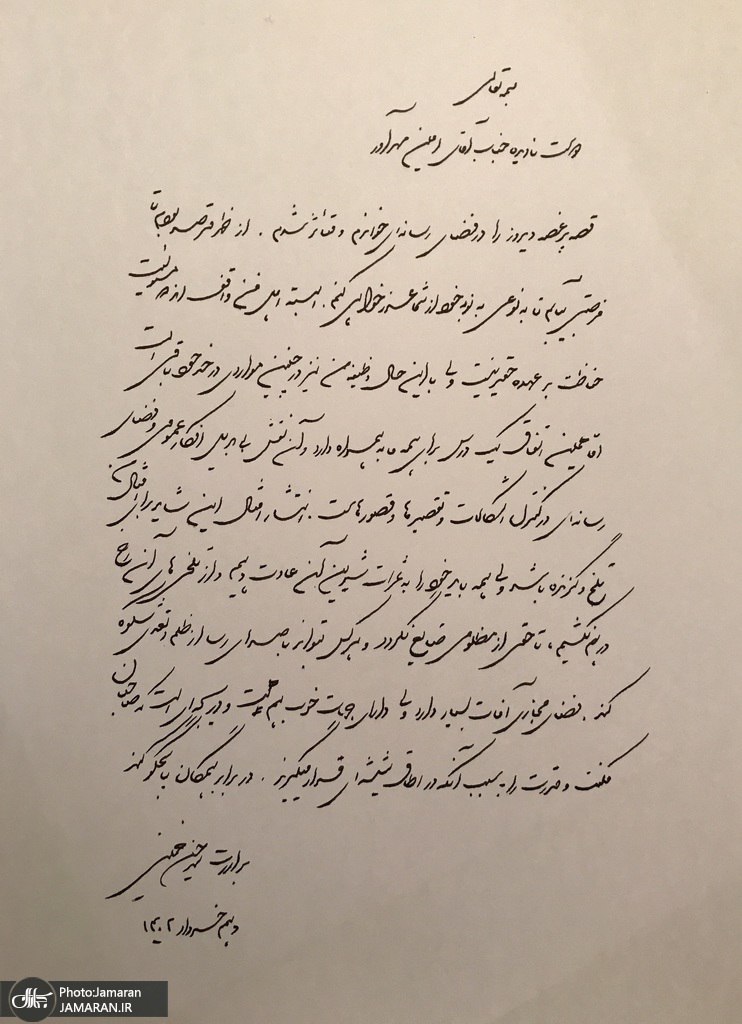 بسمه تعالی
دوست نادیده جناب آقای امین مهرآور
قصه پرغصه دیروز را در فضای رسانه‌ای خواندم و متأثر شدم. از خدا فرصت می‌خواهم تا
فرصتی بیابم تا به نوعی به نوبه خود از شما عذرخواهی کنم. البته اهل فن واقف‌اند مسئولیت
حفاظت بر عهده حقیر نیست ولی با این حال وظیفه من نیز در چنین مواردی در حد خود باقی است
اما همین اتفاق یک درس برای همه ما به همراه دارد و آن نقش بی بدیل افکار عمومی و فضای
رسانه‌ای در کنترل اشکالات و تقصیرها و قصورهاست. انتشار امثال این شاید برای امثال من
تلخ و گزنده باشد ولی همه باید خود را به ثمرات شیرین آن عادت دهیم و از تلخی های آن رخ
در هم نکشیم، تا حقی از مظلومی ضایع نگردد و هر کس بتواند با صدای رسا از ظلم و تعدی شکوه
کند. فضای مجازی آفات بسیار دارد ولی دارای جهات خوب هم هست و دریچه‌ای است که صاحبان
مکنت و قدرت را به سبب آنکه در اطاق شیشه‌ای قرار میگیرند. در برابر همگان پاسخگو کند
برادرت سید حسن خمینی
دهم خرداد ۱۴۰۲
Photo:Jamaran
JAMARAN.IR
جماران